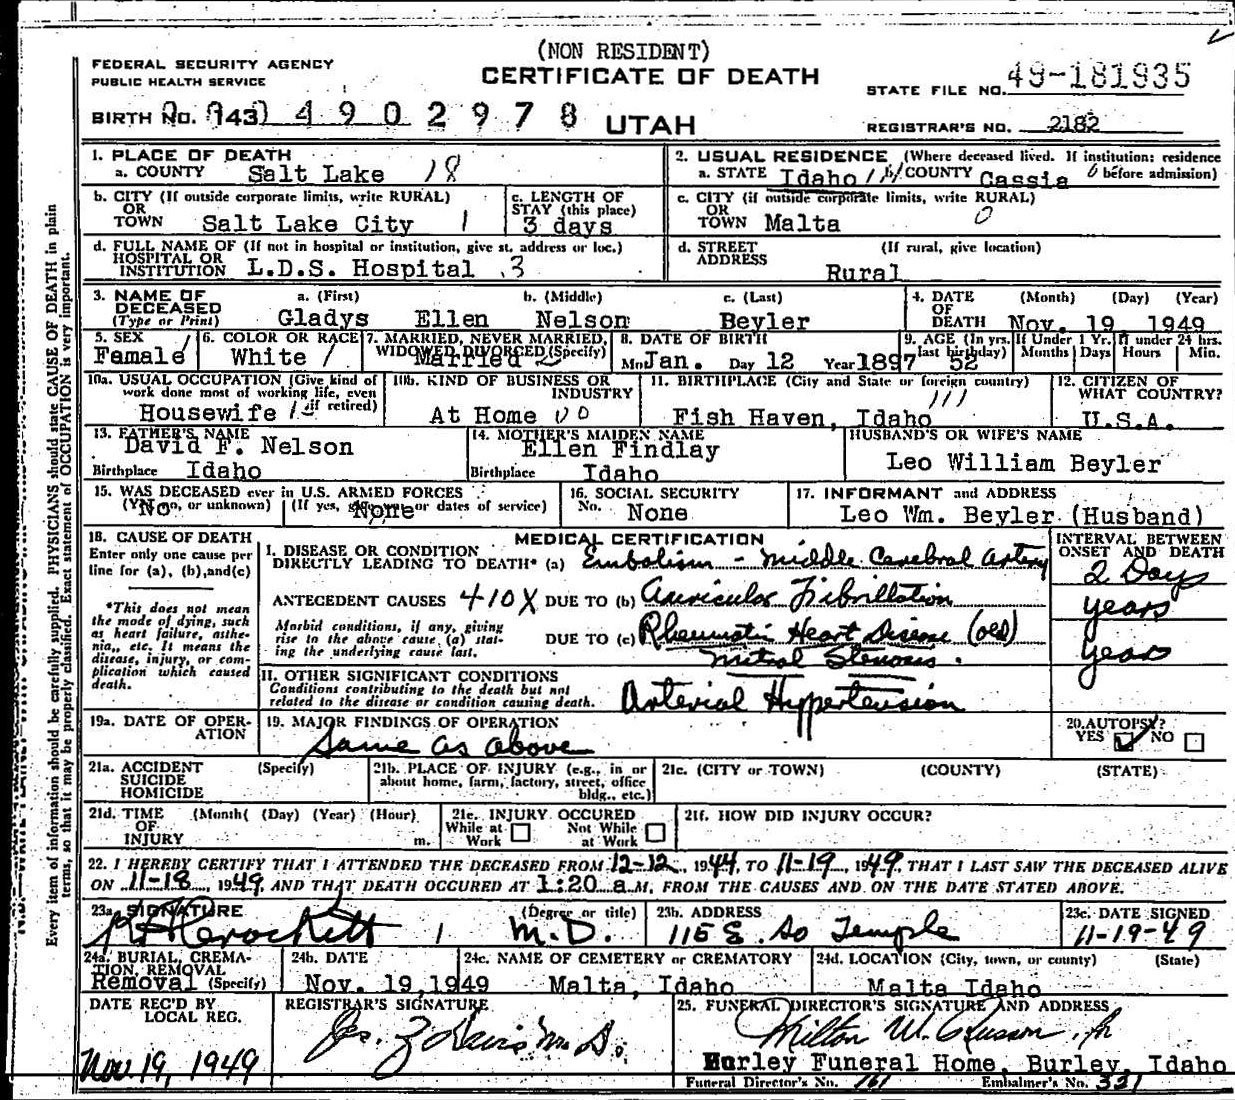 (NON RESIDENT)
FEDERAL SECURITY AGENCY
PUBLIC HEALTH SERVICE
CERTIFICATE OF DEATH
STATE FILE NO. 49-181935
BIRTH NO. 143) 4902978
UTAH
REGISTRAR'S NO. 2182
1. PLACE OF DEATH
a. COUNTY Salt Lake 18
2. USUAL RESIDENCE (Where deceased lived. If institution: residence before admission)
a. STATE Idaho COUNTY Cassia
b. CITY (If outside corporate limits, write RURAL) OR TOWN Salt Lake City 1
c. LENGTH OF STAY (this place) 3 days
c. CITY (if outside corporate limits, write RURAL) OR TOWN Malta 0
d. FULL NAME OF (If not in hospital or institution, give st. address or loc.) HOSPITAL OR INSTITUTION L.D.S. Hospital 3
d. STREET ADDRESS (If rural, give location) Rural
3. NAME OF DECEASED (Type or Print) a. (First) b. (Middle) c. (Last)
Gladys Ellen Nelson Beyler
4. DATE OF DEATH (Month) (Day) (Year)
Nov. 19 1949
5. SEX Female
6. COLOR OR RACE White
7. MARRIED, NEVER MARRIED, WIDOWED DIVORCED (Specify) Married
8. DATE OF BIRTH Mo Jan. Day 12 Year 1897
9. AGE (In yrs. last birthday) 52
If Under 1 Yr. Months Days
If under 24 hrs. Hours Min.
10a. USUAL OCCUPATION (Give kind of work done most of working life, even if retired) Housewife
10b. KIND OF BUSINESS OR INDUSTRY At Home
11. BIRTHPLACE (City and State or foreign country) Fish Haven, Idaho
12. CITIZEN OF WHAT COUNTRY? U.S.A.
13. FATHER'S NAME David F. Nelson
Birthplace Idaho
14. MOTHER'S MAIDEN NAME Ellen Findlay
Birthplace Idaho
HUSBAND'S OR WIFE'S NAME
Leo William Beyler
15. WAS DECEASED ever in U.S. ARMED FORCES
(Yes, no, or unknown) No (If yes, give war or dates of service) None
16. SOCIAL SECURITY No. None
17. INFORMANT and ADDRESS
Leo Wm. Beyler (Husband)
18. CAUSE OF DEATH
Enter only one cause per line for (a), (b), and (c)
*This does not mean the mode of dying, such as heart failure, asthenia, etc. It means the disease, injury, or complication which caused death.
MEDICAL CERTIFICATION
I. DISEASE OR CONDITION DIRECTLY LEADING TO DEATH* (a) Embolism - Middle Cerebral Artery
INTERVAL BETWEEN ONSET AND DEATH
2 Days
ANTECEDENT CAUSES 410X DUE TO (b) Auricular Fibrillation
years
Morbid conditions, if any, giving rise to the above cause (a) stating the underlying cause last.
DUE TO (c) Rheumatic Heart Disease (old)
Mitral Stenosis.
years
II. OTHER SIGNIFICANT CONDITIONS
Conditions contributing to the death but not related to the disease or condition causing death.
Arterial Hypertension
19a. DATE OF OPERATION
19. MAJOR FINDINGS OF OPERATION
Same as above
20. AUTOPSY?
YES NO
21a. ACCIDENT SUICIDE HOMICIDE (Specify)
21b. PLACE OF INJURY (e.g., in or about home, farm, factory, street, office bldg., etc.)
21c. (CITY or TOWN) (COUNTY) (STATE)
21d. TIME OF INJURY (Month( (Day) (Year) (Hour) m.
21e. INJURY OCCURED
While at Work Not While at Work
21f. HOW DID INJURY OCCUR?
22. I HEREBY CERTIFY THAT I ATTENDED THE DECEASED FROM 12-12, 1944, TO 11-19, 1949, THAT I LAST SAW THE DECEASED ALIVE
ON 11-18, 1949, AND THAT DEATH OCCURED AT 1:20 a M, FROM THE CAUSES AND ON THE DATE STATED ABOVE.
23a. SIGNATURE (Degree or title)
Crockett M.D.
23b. ADDRESS
115 E. So Temple
23c. DATE SIGNED
11-19-49
24a. BURIAL, CREMATION, REMOVAL (Specify) Removal
24b. DATE
Nov. 19, 1949
24c. NAME OF CEMETERY or CREMATORY
Malta, Idaho
24d. LOCATION (City, town, or county) (State)
Malta Idaho
DATE REC'D BY LOCAL REG.
Nov 19, 1949
REGISTRAR'S SIGNATURE
25. FUNERAL DIRECTOR'S SIGNATURE AND ADDRESS
Milton W.
Burley Funeral Home, Burley, Idaho
Funeral Director's No. 161 Embalmer's No. 331
Every item of information should be carefully supplied. PHYSICIANS should state CAUSE OF DEATH in plain
terms, so that it may be properly classified. Exact statement of OCCUPATION is very important.